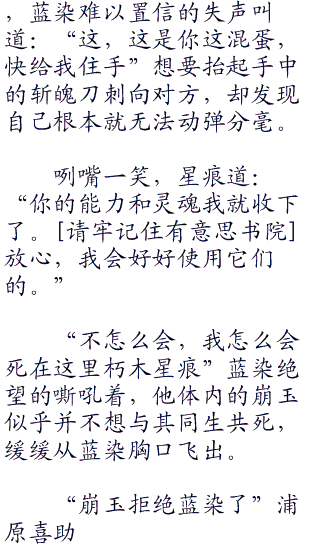 ，蓝染难以置信的失声叫
道：“这，这是你这混蛋，
快给我住手”想要抬起手中
的斩魄刀刺向对方，却发现
自己根本就无法动弹分毫。
咧嘴一笑，星痕道：
“你的能力和灵魂我就收下
了。[请牢记住有意思书院]
放心，我会好好使用它们
的。”
“不怎么会，我怎么会
死在这里朽木星痕”蓝染绝
望的嘶吼着，他体内的崩玉
似乎并不想与其同生共死，
缓缓从蓝染胸口飞出。
“崩玉拒绝蓝染了”浦
原喜助